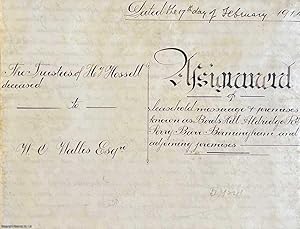 Dated the 17th day of February 191
The Trustees of
deceased
to
W. C. Walles Esqre
Assignment
of
leasehold messuage & premises
known as Birds Hill Aldridge Rd
Perry Barr Birmingham and
adjoining premises